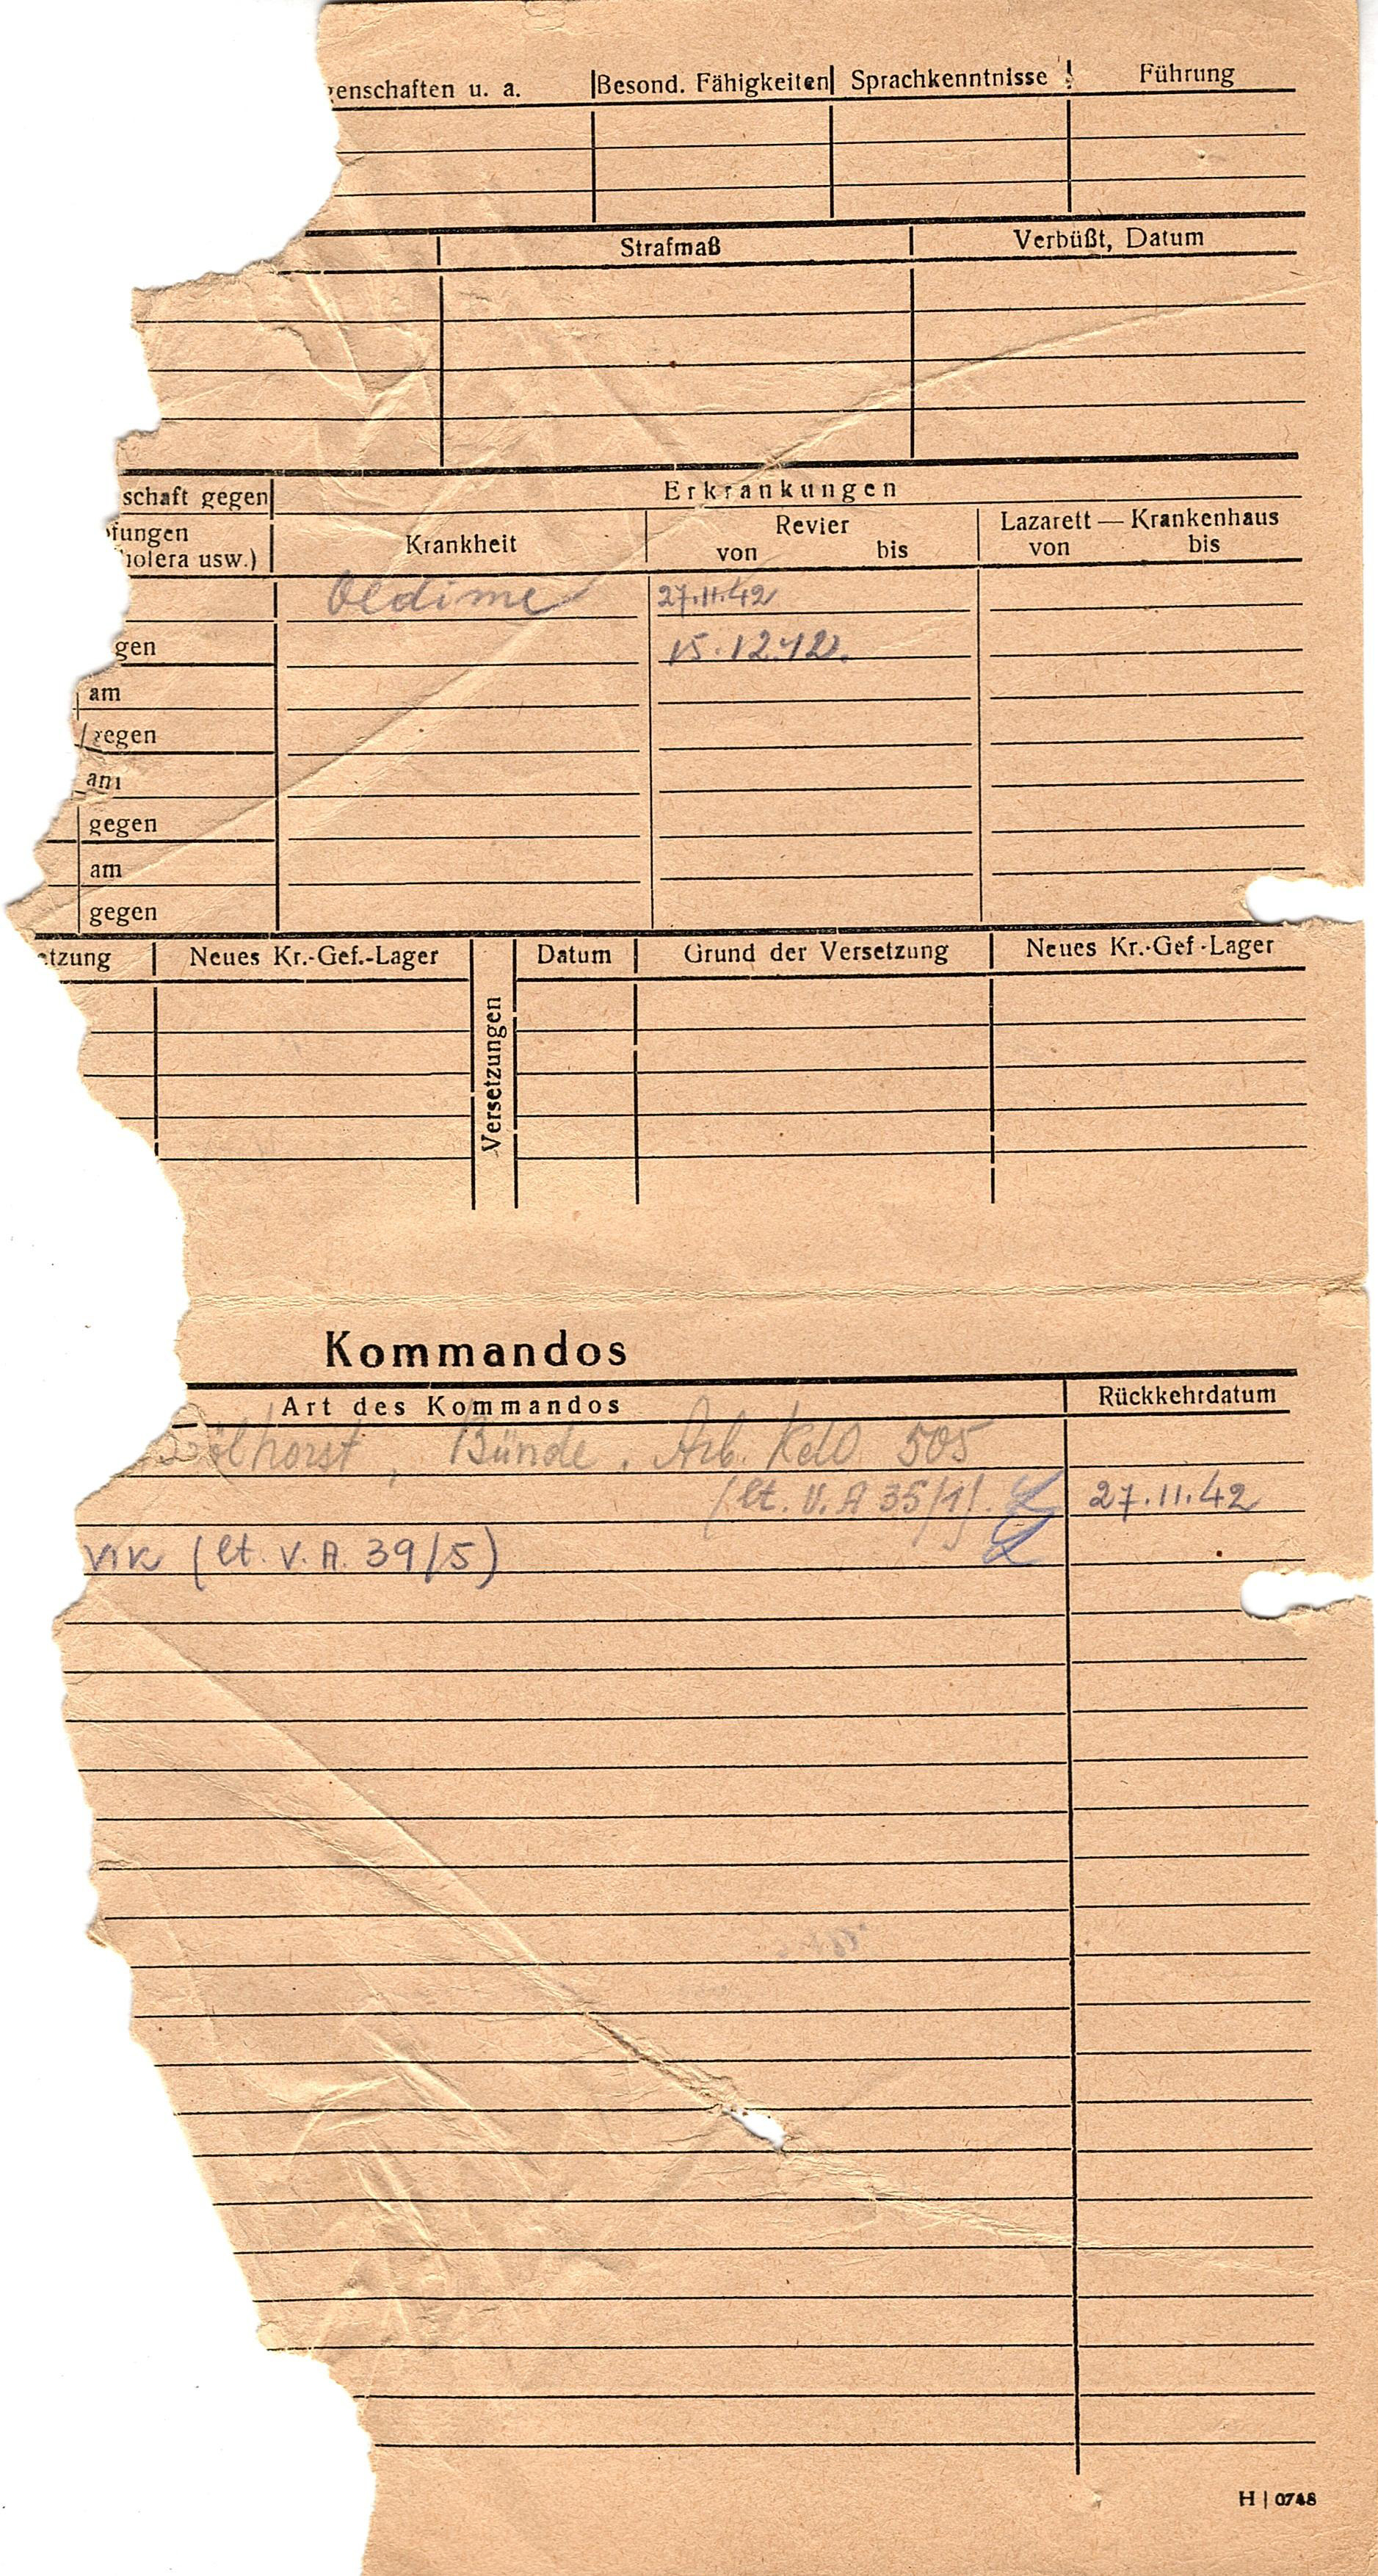 enschaften u. a. Besond. Fähigkeiten Sprachkenntnisse Führung
Strafmaß Verbüßt, Datum
schaft gegen Erkrankungen
fungen Krankheit Revier Lazarett — Krankenhaus
holera usw.) von bis von bis
27.11.42
gen 15.12.42.
am
gegen
am
gegen
am
gegen
tzung Neues Kr.-Gef.-Lager Versetzungen Datum Grund der Versetzung Neues Kr.-Gef.-Lager
Kommandos
Art des Kommandos Rückkehrdatum
Bünde. Arb. Kdo. 505
(lt. V. A 35/1). 27.11.42
(lt. V. A. 39/5)
H | 0748